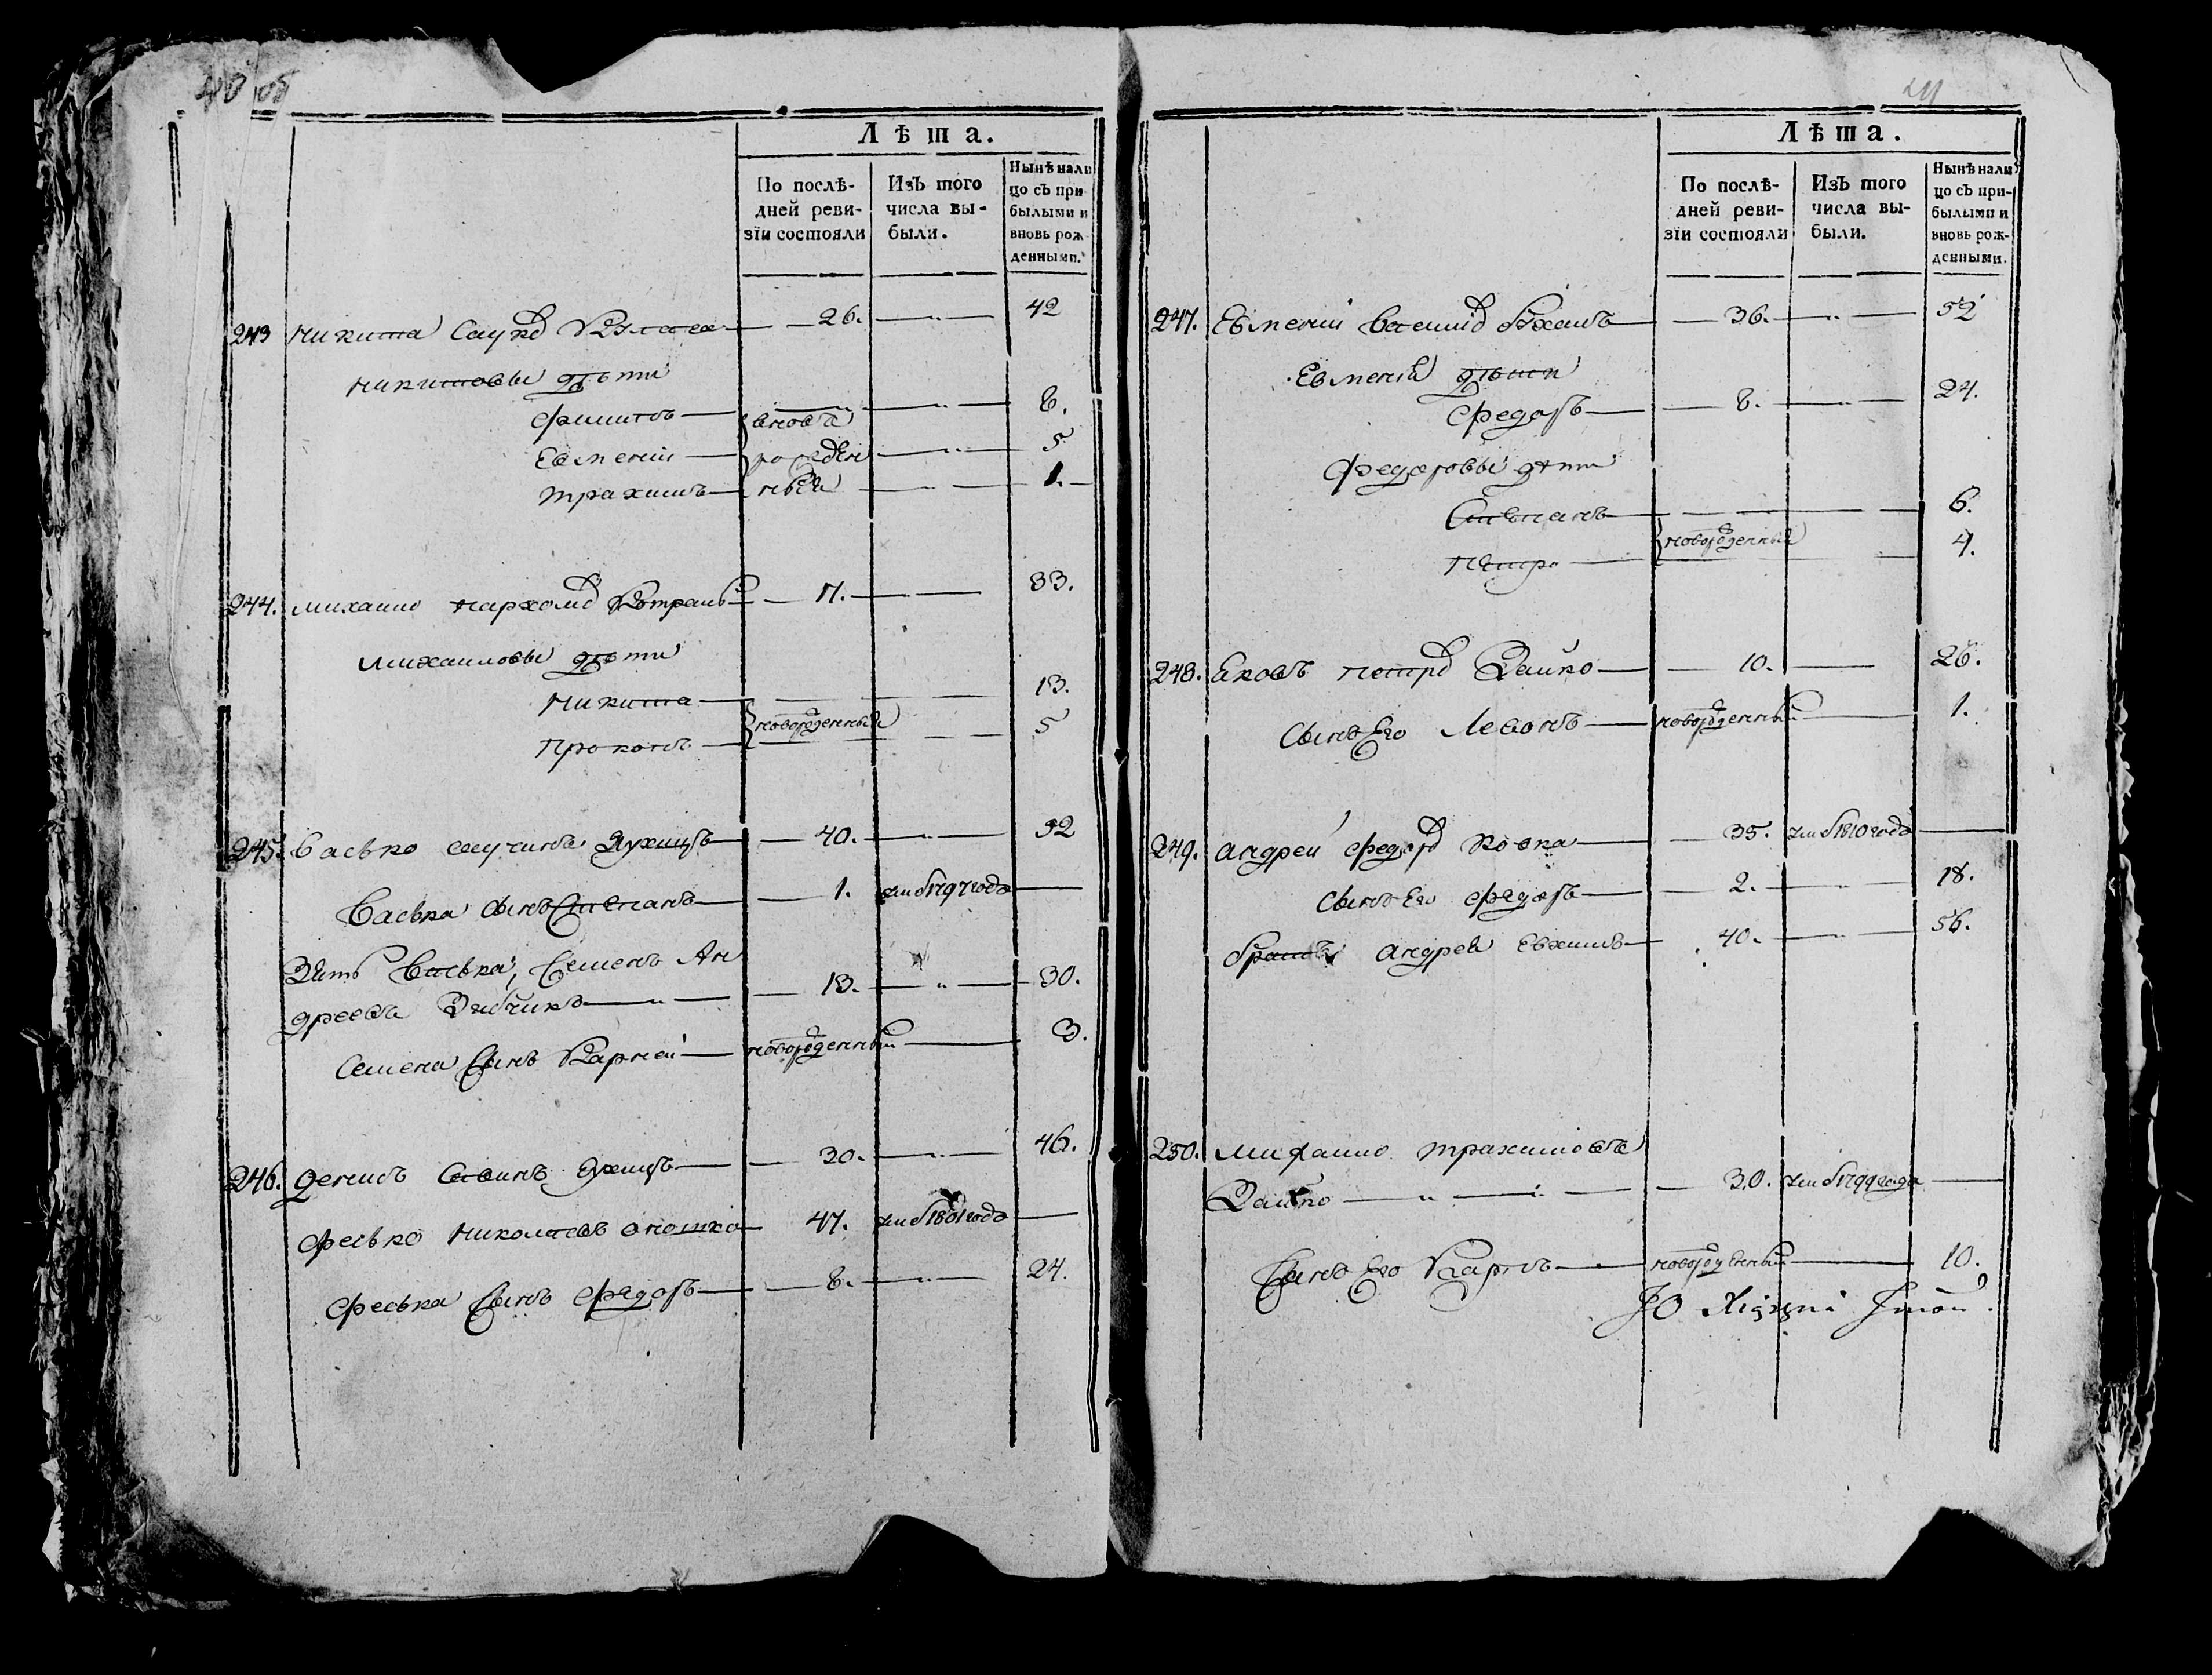 40 об
Лѣта.
По послѣ-
дней реви-
зіи состояли
Изъ того
числа вы-
были.
Нынѣ нали
цо съ при
былыми и
вновь рож-
денными.
243 Никита 26. 42
Никитовы дѣти
Филипъ вновь 8.
Евменій рожден 5
Трахимъ ный 1.
244. Михайло Пархомов 17. 33.
Михаиловы дѣти
Никита 13.
новорожденный
Прокопъ 5
245. Васько 40. 52
Васька сынъ Степанъ 1. 1797 года
Зять Васька, Семенъ Ан
дреевъ 13. 30.
Семена Сынъ Карней новорожденный 3.
246. Денисъ Савинъ 30. 46.
Феська Николаевъ 47. 1801 года
Феська Сынъ Федоръ 8. 24.
Лѣта.
По послѣ-
дней реви-
зіи состояли
Изъ того
числа вы-
были.
Нынѣ нали
цо съ при-
былыми и
вновь рож-
денными.
247. Евменій 36. 52
Евменія дѣти
Федоръ 8. 24.
Федоровы дѣти
Степанъ 6.
новорожденный
Петро 4.
248. Яковъ Петров 10. 26.
Сынъ Его Левонъ новорожденный 1.
249. Андрей Федоров 35. 1810 года
Сынъ Его Федоръ 2. 18.
Андрей Евхимов 40. 56.
250. Михайло Трахимовъ
30. 1799 года
Сынъ Его Карпъ новорожденный 10.